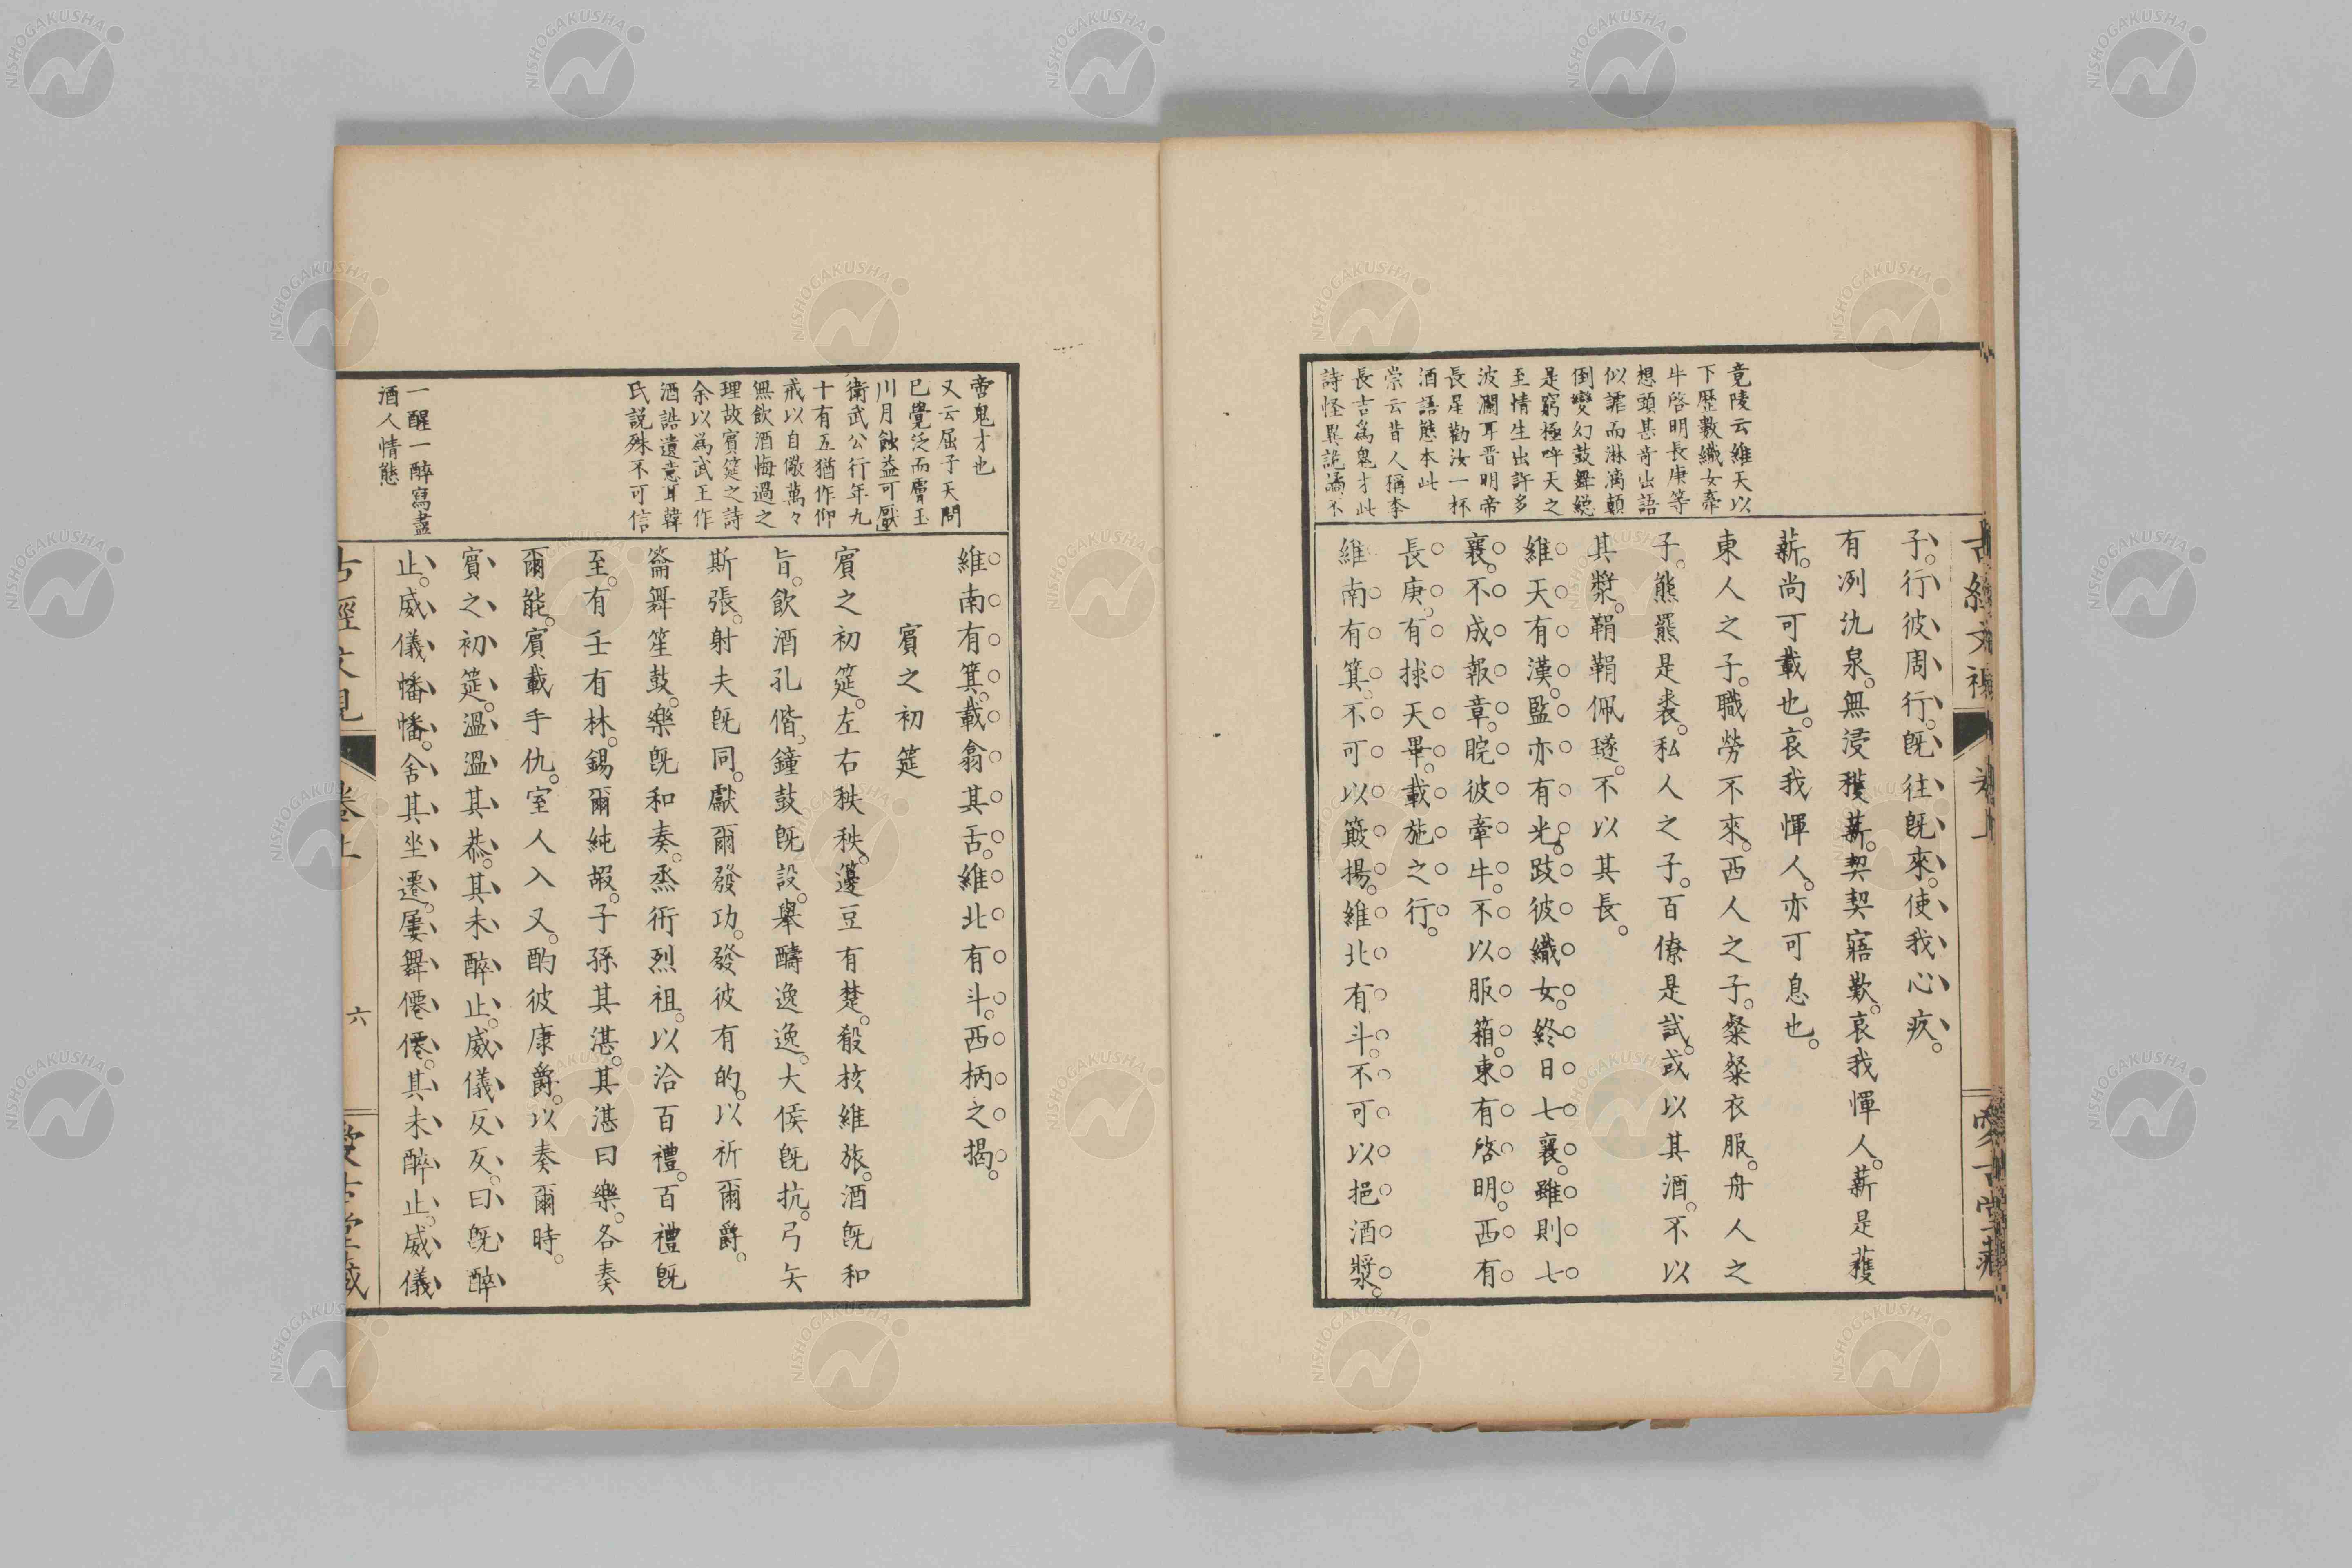 竟陵云維天以
下歷數織女牽
牛啓明長庚等
想頭甚奇出語
似謔而淋漓顛
倒變幻鼓舞總
是窮極呼天之
至情生出許多
波瀾耳晋明帝
長星勸汝一杯
酒語態本此
崇云昔人稱李
長吉爲鬼才此
詩怪異詭譎不
子。行彼周行。既往既來。使我心疚。
有冽氿泉。無浸穫薪。契契寤歎。哀我憚人。薪是穫
薪。尚可載也。哀我憚人。亦可息也。
東人之子。職勞不來。西人之子。粲粲衣服。舟人之
子。熊羆是裘。私人之子。百僚是試。或以其酒。不以
其漿。鞙鞙佩璲。不以其長。
維天有漢。監亦有光。跂彼織女。終日七襄。雖則七
襄。不成報章。睆彼牽牛。不以服箱。東有啓明。西有
長庚。有捄天畢。載施之行。
維南有箕。不可以簸揚。維北有斗。不可以挹酒漿。
啻鬼才也
又云屈子天問
已覺泛而膚玉
川月蝕益可厭
衛武公行年九
十有五猶作仰
戒以自儆萬々
無飲酒悔過之
理故賓筵之詩
余以爲武王作
酒誥遺意耳韓
氏説殊不可信
一醒一醉寫盡
酒人情態
維南有箕。載翕其舌。維北有斗。西柄之揭。
賓之初筵
賓之初筵。左右秩秩。籩豆有楚。殽核維旅。酒既和
旨。飲酒孔偕。鐘鼓既設。舉醻逸逸。大侯既抗。弓矢
斯張。射夫既同。獻爾發功。發彼有的。以祈爾爵。
籥舞笙鼓。樂既和奏。烝衎烈祖。以洽百禮。百禮既
至。有壬有林。錫爾純嘏。子孫其湛。其湛曰樂。各奏
爾能。賓載手仇。室人入又。酌彼康爵。以奏爾時。
賓之初筵。溫溫其恭。其未醉止。威儀反反。曰既醉
止。威儀幡幡。舍其坐遷。屢舞僊僊。其未醉止。威儀
卷上
六